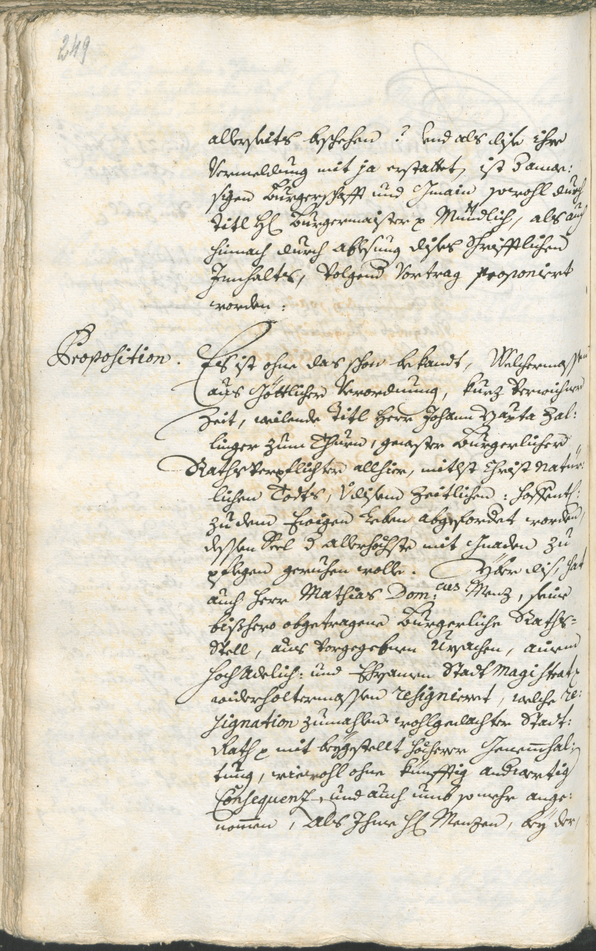 249
allerseits beschehen? Und als dise ihre
Vermeldung mit ja erstattet, ist d' anwe:
sigen Burgerschafft und Gmain sowohl durch
Titl H: Burgermaister p Mündlich, als auch
hinnach durch ablesung dises Schrifftlichen
Innhalts, volgend Vortrag proponiert
worden:
Proposition. Es ist ohne das schon bekandt, Welchermassen
aus Göttlicher Verordnung, kurz verwichner
Zeit, weilende Titl Herr Johann
linger zum Thurn, gewester Burgerlicher
Rathsverpflichter allhier, mitlst Christ Natür:
lichen Todts, diesem Zeitlichen: hoffentl:
zu dem Ewigen Leben abgefordert worden
dessen Seel d' Allerhöchste mit Gnaden zu
pflegen geruhen wolle. Über diss hat
auch Herr Mathias Dom:cus Menz, seine
bisshero obgetragene Burgerliche Raths=
Stell, aus vorgegebnen Ursachen, ainem
HochAdelich: und Ehrsamen Stadt Magistrat
widerholtermassen resigniert, welche re:
signation zumahlen wohlgedachter Stadt:
Rath p mit beygestellt
tung, wiewohl ohne künfftig andwertig
Consequenz, und auch umb so mehr ange:
nommen, Als Ihme H: Menzen, bey der